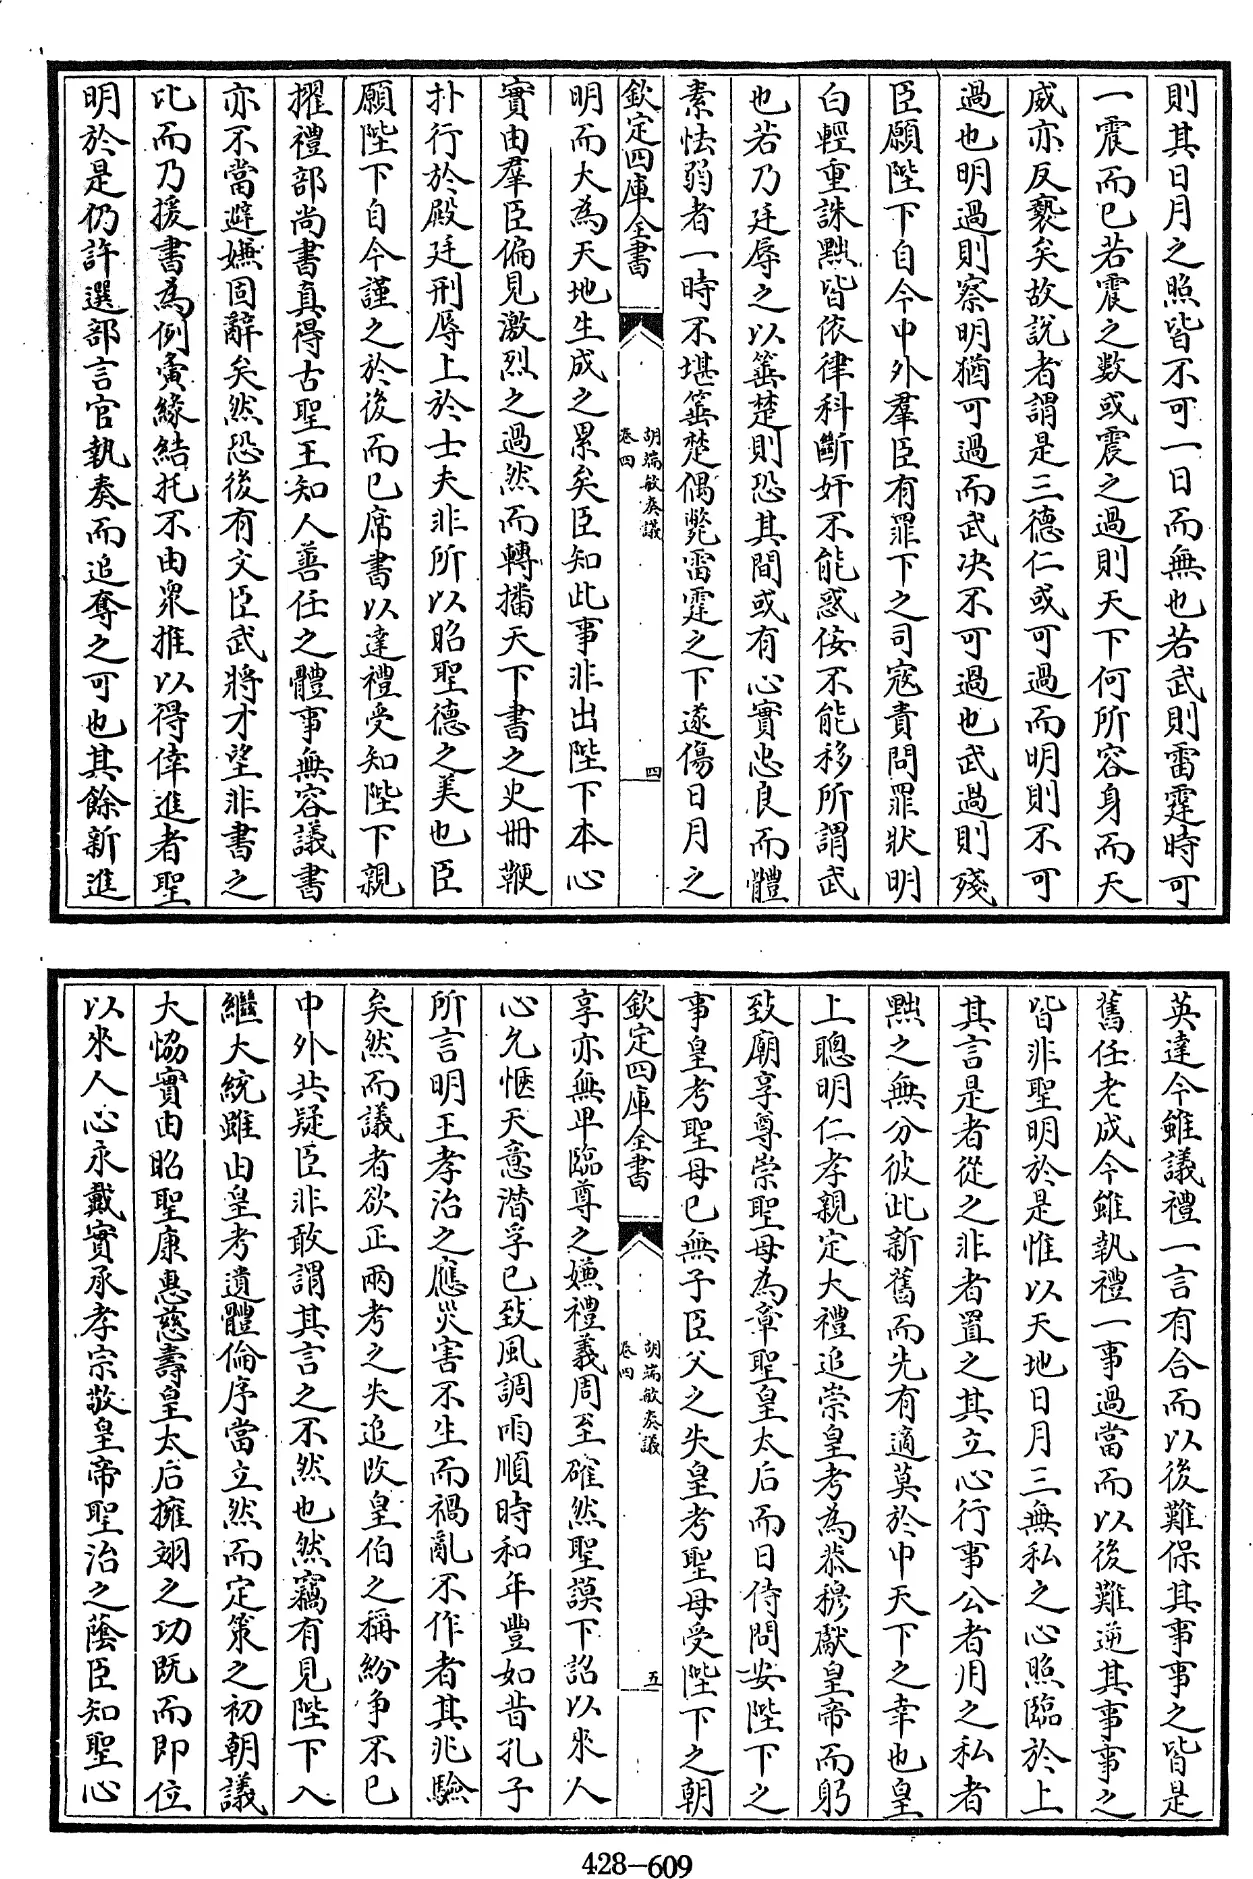 則其日月之照皆不可一日而無也若武則雷霆時可
一震而已若震之數或震之過則天下何所容身而天
威亦反褻矣故説者謂是三德仁或可過而明則不可
過也明過則察明猶可過而武决不可過也武過則殘
臣願陛下自今中外羣臣有罪下之司宼責問罪狀明
白輕重誅黜皆依律科斷奸不能惑佞不能移所謂武
也若乃廷辱之以箠楚則恐其間或有心實忠良而體
素怯弱者一時不堪箠楚偶斃雷霆之下遂傷日月之
欽定四庫全書
胡端敏奏議
卷四
四
明而大為天地生成之累矣臣知此事非出陛下本心
實由羣臣偏見激烈之過然而轉播天下書之史册鞭
扑行於殿廷刑辱上於士夫非所以昭聖德之美也臣
願陛下自今謹之於後而已席書以達禮受知陛下親
擢禮部尚書真得古聖王知人善任之體事無容議書
亦不當避嫌固辭矣然恐後有文臣武將才望非書之
比而乃援書為例夤緣結托不由衆推以得倖進者聖
明於是仍許選部言官執奏而追奪之可也其餘新進
英達今雖議禮一言有合而以後難保其事事之皆是
舊任老成今雖執禮一事過當而以後難逆其事事之
皆非聖明於是惟以天地日月三無私之心照臨於上
其言是者從之非者置之其立心行事公者用之私者
黜之無分彼此新舊而先有適莫於中天下之幸也皇
上聰明仁孝親定大禮追崇皇考為恭穆獻皇帝而躬
致廟享尊崇聖母為章聖皇太后而日侍問安陛下之
事皇考聖母已無子臣父之失皇考聖母受陛下之朝
欽定四庫全書
胡端敏奏議
卷四
五
享亦無卑臨尊之嫌禮義周至確然聖謨下詔以來人
心允愜天意潛孚已致風調雨順時和年豐如昔孔子
所言明王孝治之應災害不生而禍亂不作者其兆驗
矣然而議者欲正兩考之失追改皇伯之稱紛爭不已
中外共疑臣非敢謂其言之不然也然竊有見陛下入
繼大統雖由皇考遺體倫序當立然而定策之初朝議
大恊實由昭聖康惠慈壽皇太后擁翊之功既而即位
以來人心永戴實承孝宗敬皇帝聖治之蔭臣知聖心
428-609